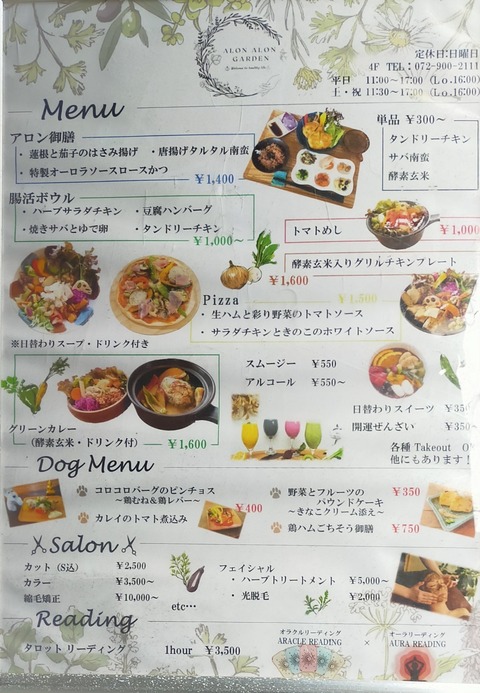 ALON ALON
GARDEN
定休日:日曜日
4F TEL:072-900-2111
平日 11:00~17:00 (L.o.16:00)
土・祝 11:30~17:00 (L.o.16:00)
Menu
アロン御膳
・蓮根と茄子のはさみ揚げ ・唐揚げタルタル南蛮
・特製オーロラソースロースかつ
¥1,400
単品 ¥300~
タンドリーチキン
サバ南蛮
酵素玄米
腸活ボウル
・ハーブサラダチキン ・豆腐ハンバーグ
・焼きサバとゆで卵 ・タンドリーチキン
¥1,000~
トマトめし ¥1,000
酵素玄米入りグリルチキンプレート
¥1,600
Pizza ¥1,500
・生ハムと彩り野菜のトマトソース
・サラダチキンときのこのホワイトソース
※日替わりスープ・ドリンク付き
グリーンカレー
(酵素玄米・ドリンク付) ¥1,600
スムージー ¥550
アルコール ¥550~
日替わりスイーツ ¥350
開運ぜんざい ¥350~
各種 Takeout
他にもあります!
Dog Menu
コロコロバーグのピンチョス
~鶏むね&鶏レバー~
カレイのトマト煮込み
¥400
野菜とフルーツの
パウンドケーキ
~きなこクリーム添え~
¥350
鶏ハムごちそう御膳 ¥750
Salon
カット (S込) ¥2,500
カラー ¥3,500~
縮毛矯正 ¥10,000~
etc…
フェイシャル
・ハーブトリートメント ¥5,000~
・光脱毛 ¥2,000
Reading
タロットリーディング 1hour ¥3,500
オラクルリーディング
ARACLE READING
×
オーラリーディング
AURA READING